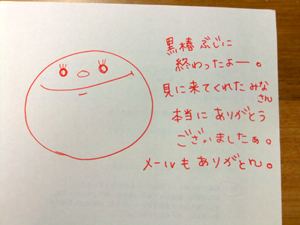 黒椿ぶじに
終わったよー。
見に来てくれたみなさん
本当にありがとう
ございましたぁ。
メールもありがとん。